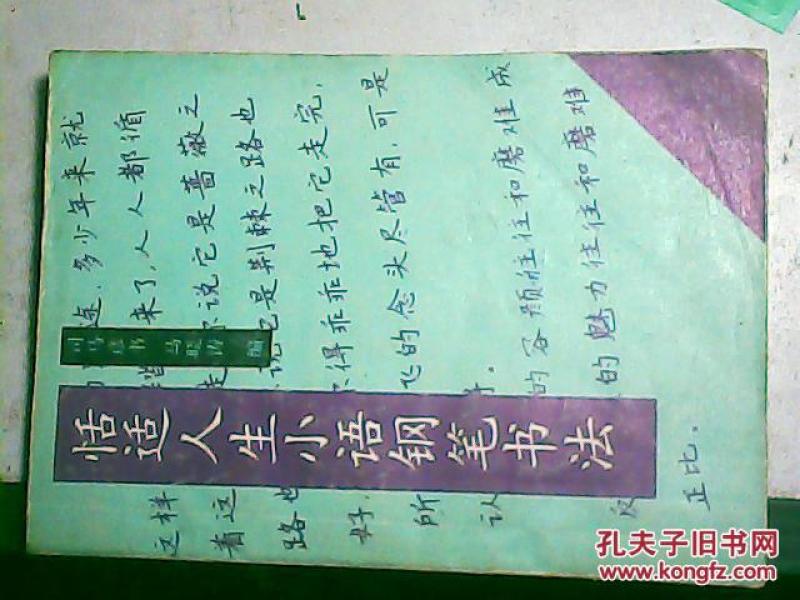 途,多少年来就
这样 来了,人人都循
着这 说它是蔷薇之
路也 说它是荆棘之路也
好 得乖乖地把它走完,
所 飞的念头尽管有,可是
认
的容颜往往和磨难成
反 的魅力往往和磨难
正比。
恬适人生小语钢笔书法
司马 书 马 编
孔夫子旧书网
www.kongfz.com